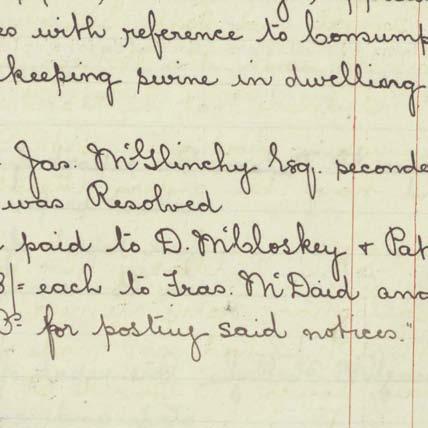 es with reference to Consump
keeping swine in dwelling
Jas. McGlinchy Esq. seconde
was Resolved
paid to D. McCloskey + Pat
3/= each to Fras. McDaid and
for posting said notices."